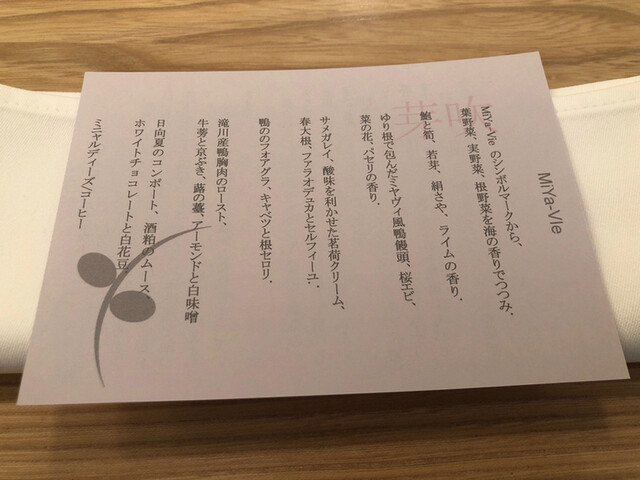 MiYa-Vie
芽吹
MiYa-Vie のシンボルマークから、
葉野菜、実野菜、根野菜を海の香りでつつみ.
鮑と筍、若芽、絹さや、ライムの香り.
ゆり根で包んだミヤヴィ風鴨饅頭、桜エビ、
菜の花、パセリの香り.
サメガレイ、酸味を利かせた茗荷クリーム、
春大根、ファラオデュカとセルフィーユ.
鴨ののフォアグラ、キャベツと根セロリ.
滝川産鴨胸肉のロースト、
牛蒡と京ぶき、蕗の薹、アーモンドと白味噌
日向夏のコンポート、酒粕のムース、
ホワイトチョコレートと白花豆
ミニャルディーズ/コーヒー